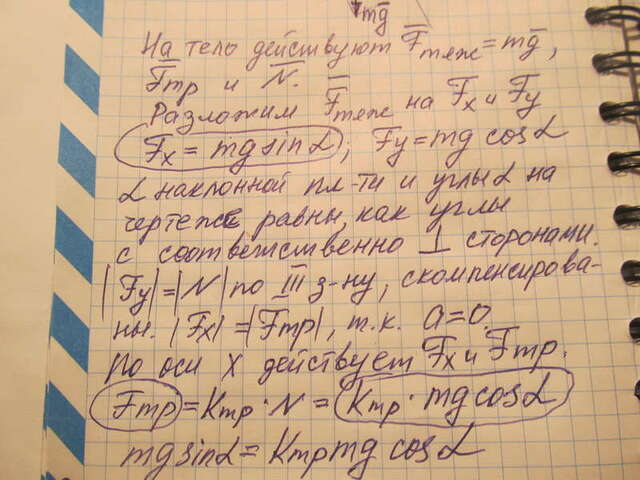 mg̅
На тело действуют F̅тяж = mg̅,
F̅тр и N̅.
Разложим F̅тяж на Fx и Fy
Fx = mg sin α; Fy = mg cos α
α наклонной пл-ти и углы α на
чертеже равны, как углы
с соответственно ⊥ сторонами.
|Fy| = |N| по III з-ну, скомпенсирова-
ны. |Fx| = |Fтр|, т.к. a = 0.
По оси X действует Fx и Fтр.
Fтр = Kтр · N = Kтр · mg cos α
mg sin α = Kтр mg cos α